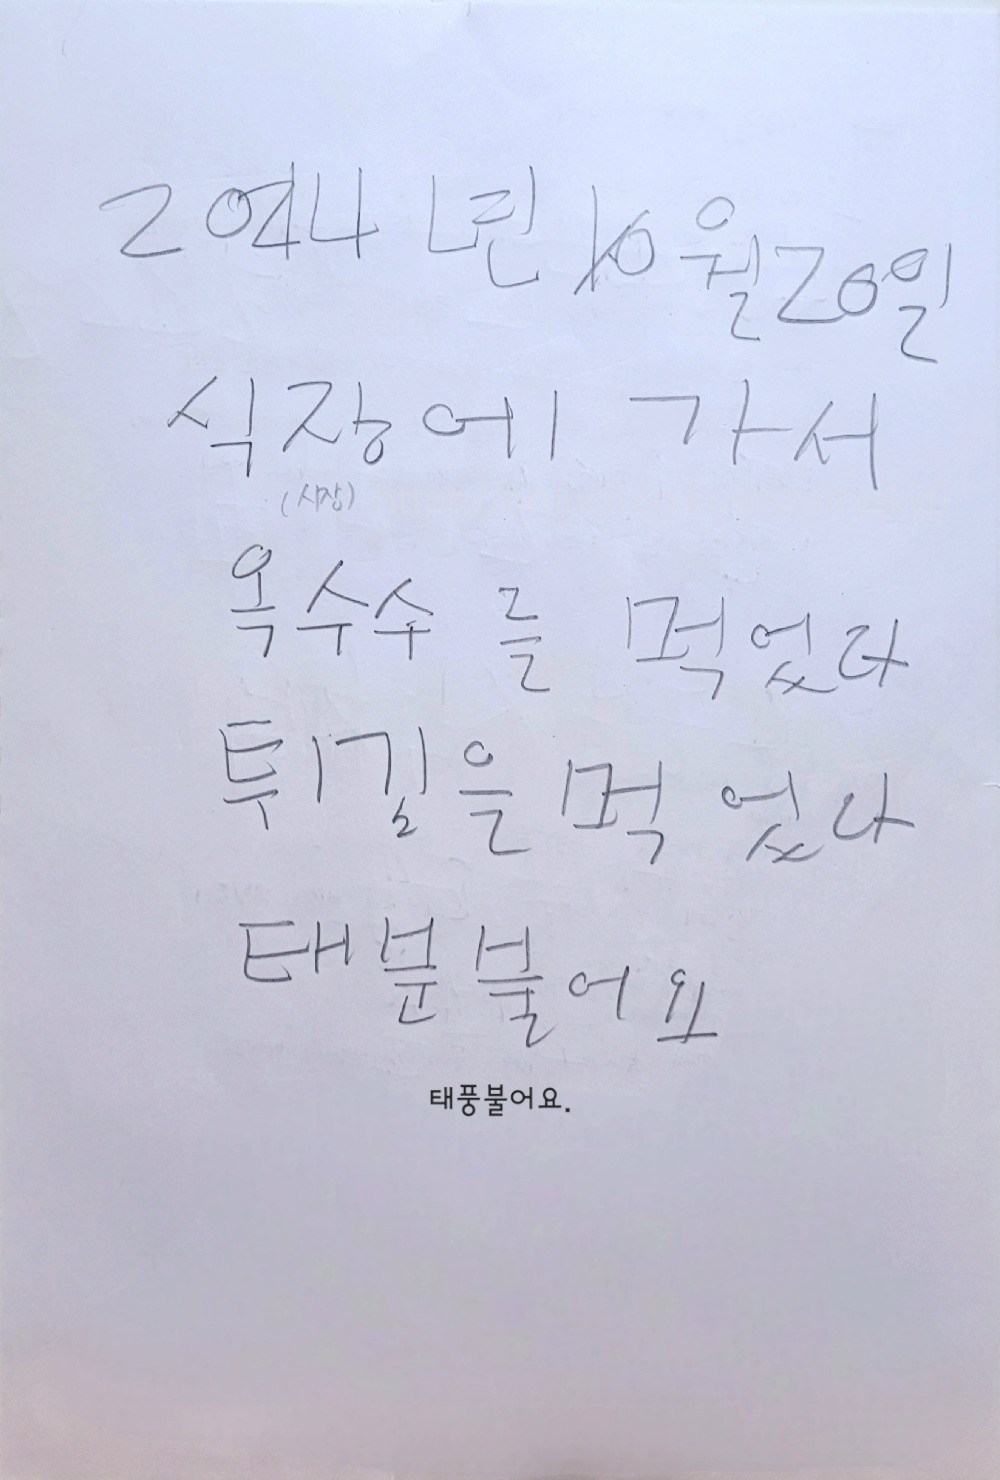 2024년 10월 20일
식장에 가서
(시장)
옥수수를 먹었다
튀김을 먹었다
태분불어요
태풍불어요.